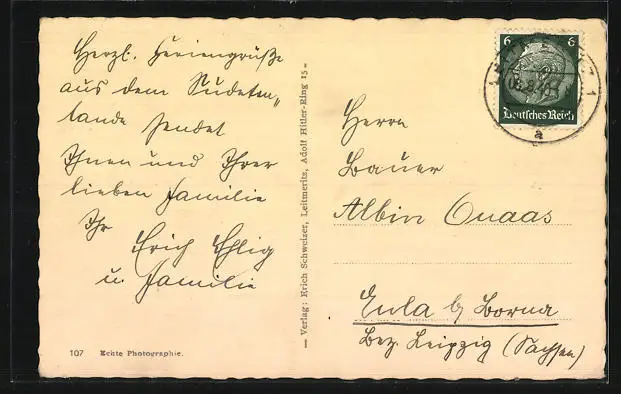 Herzl. Feriengrüße
aus dem Sudeten„
lande sendet
Ihnen und Ihrer
lieben Familie
Ihr
Erich Ehlig
u. Familie
107 Echte Photographie.
— Verlag: Erich Schweizer, Leitmeritz, Adolf Hitler-Ring 15 —
6 6
Deutsches Reich
1
a
Herrn
Bauer
Albin Quaas
Eula b/ Borna
Bez. Leipzig (Sachsen)